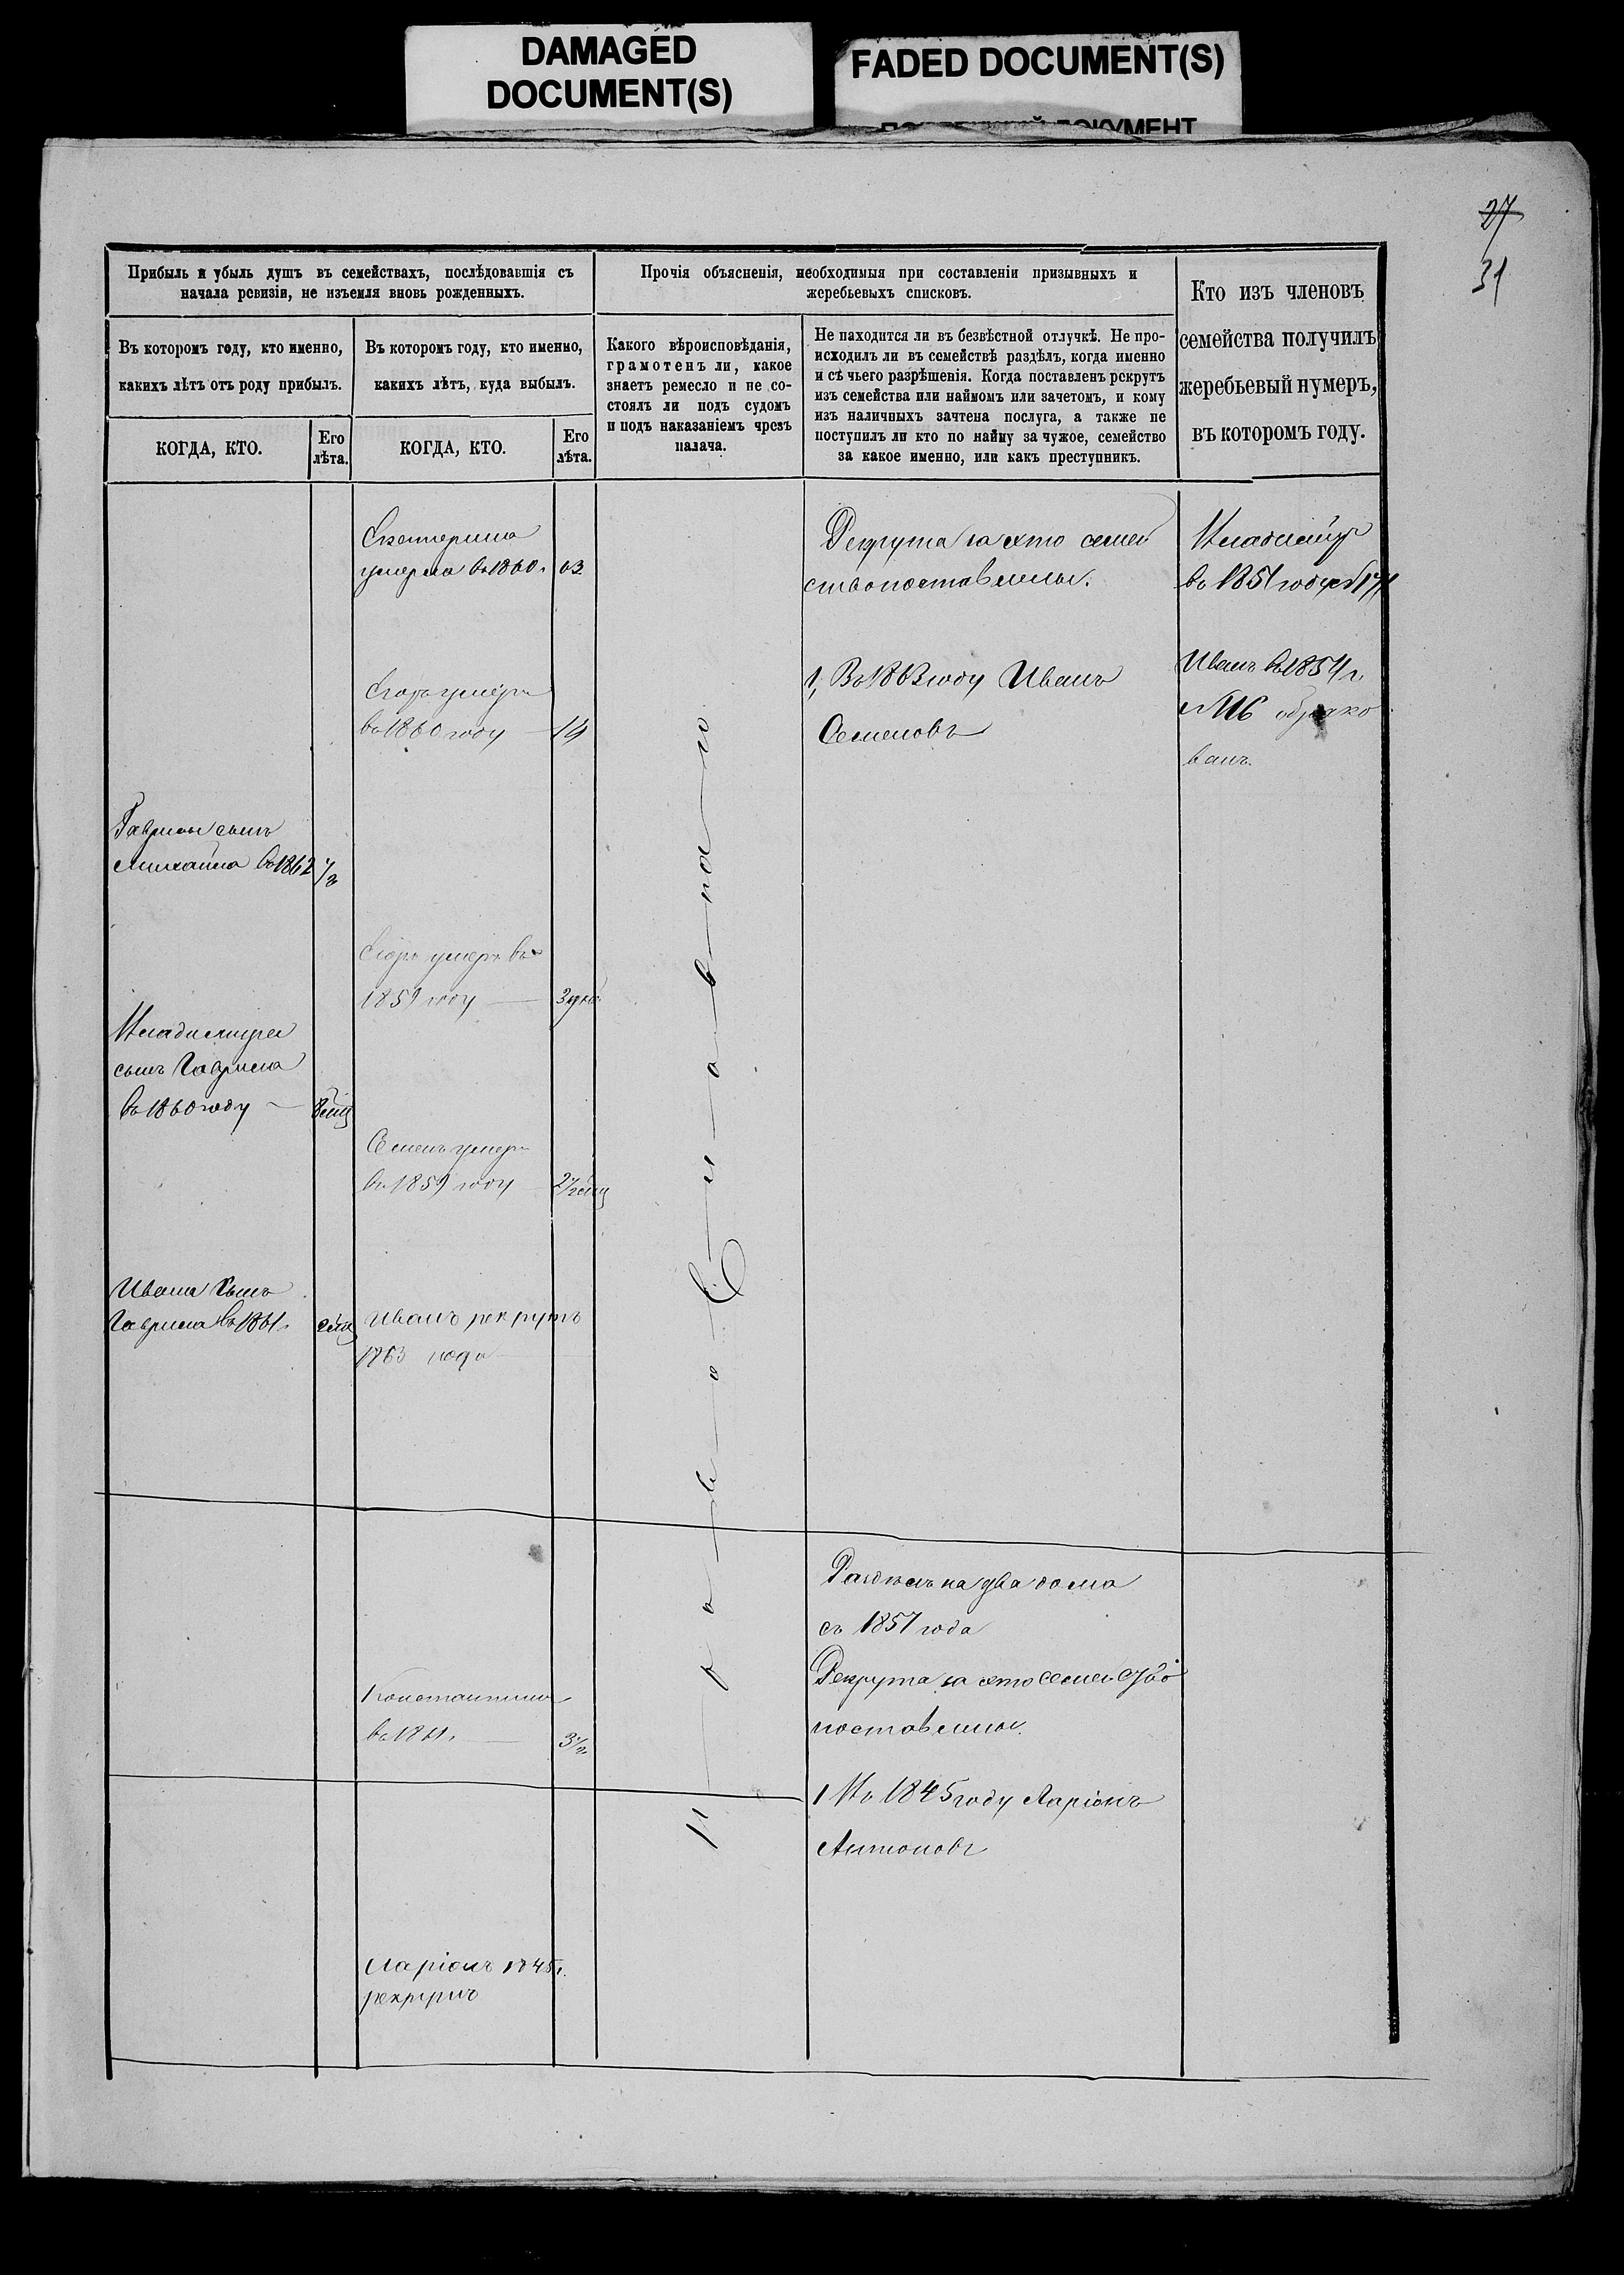 DAMAGED
DOCUMENT(S)
FADED DOCUMENT(S)
ДОКУМЕНТ
27
31
Прибыль и убыль душъ въ семействахъ, послѣдовавшія съ
начала ревизіи, не изъемля вновь рожденныхъ.
Прочія объясненія, необходимыя при составленіи призывныхъ и
жеребьевыхъ списковъ.
Кто изъ членовъ
семейства получилъ
жеребьевый нумеръ,
въ которомъ году.
Въ которомъ году, кто именно,
какихъ лѣтъ отъ роду прибылъ.
Въ которомъ году, кто именно,
какихъ лѣтъ, куда выбылъ.
Какого вѣроисповѣданія,
грамотенъ ли, какое
знаетъ ремесло и не со-
стоялъ ли подъ судомъ
и подъ наказаніемъ чрезъ
палача.
Не находится ли въ безвѣстной отлучкѣ. Не про-
исходилъ ли въ семействѣ раздѣлъ, когда именно
и съ чьего разрѣшенія. Когда поставленъ рекрутъ
изъ семейства или наймомъ или зачетомъ, и кому
изъ наличныхъ зачтена послуга, а также не
поступилъ ли кто по найму за чужое, семейство
за какое именно, или какъ преступникъ.
КОГДА, КТО.
Его
лѣта.
КОГДА, КТО.
Его
лѣта.
Екатерина
умерла въ 1860.
Рекрута за ето семей
ство поставлены.
Владимiръ
въ 1851 году
Егоръ умеръ
въ 1860 году 19
1, Въ 1863 году Иванъ
Семеновъ
Иванъ въ 1854 г.
№ 116 обрако
ванъ.
Гаврилы сынъ
Михайла въ 1862 1/2
Егоръ умеръ въ
1859 году
Владимира
сынъ Гаврила
въ 1860 году
Семенъ умеръ
въ 1859 году
Ивана сынъ
Гаврила въ 1861.
Иванъ рекрутъ
1863 года
Раздѣлъ на два дома
съ 1857 года
Рекрута за ето семейство
поставлены.
Константинъ
въ 1861. 3 1/2
1 Въ 1845 году Ларіонъ
Антоновъ
Ларіонъ 1845 г.
рекрутъ
Православнаго Единаврнаго